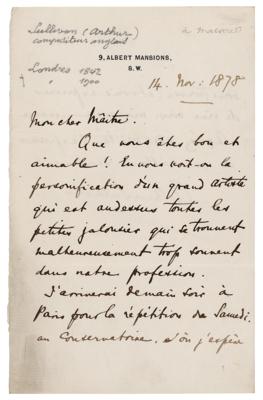 Sullivan (Arthur)
compositeur anglais
à Massenet
Londres 1842
1900
9, ALBERT MANSIONS,
S. W.
14. Nov: 1878
Mon cher Maître.
Que vous êtes bon et
aimable! En vous voit-on la
personification d'un grand artiste
qui est audessus toutes les
petites jalousies qui se trouvent
malheureusement trop souvent
dans notre profession.
J'arriverai demain soir à
Paris pour la répétition de Samedi.
au Conservatoire, d'où j'espère